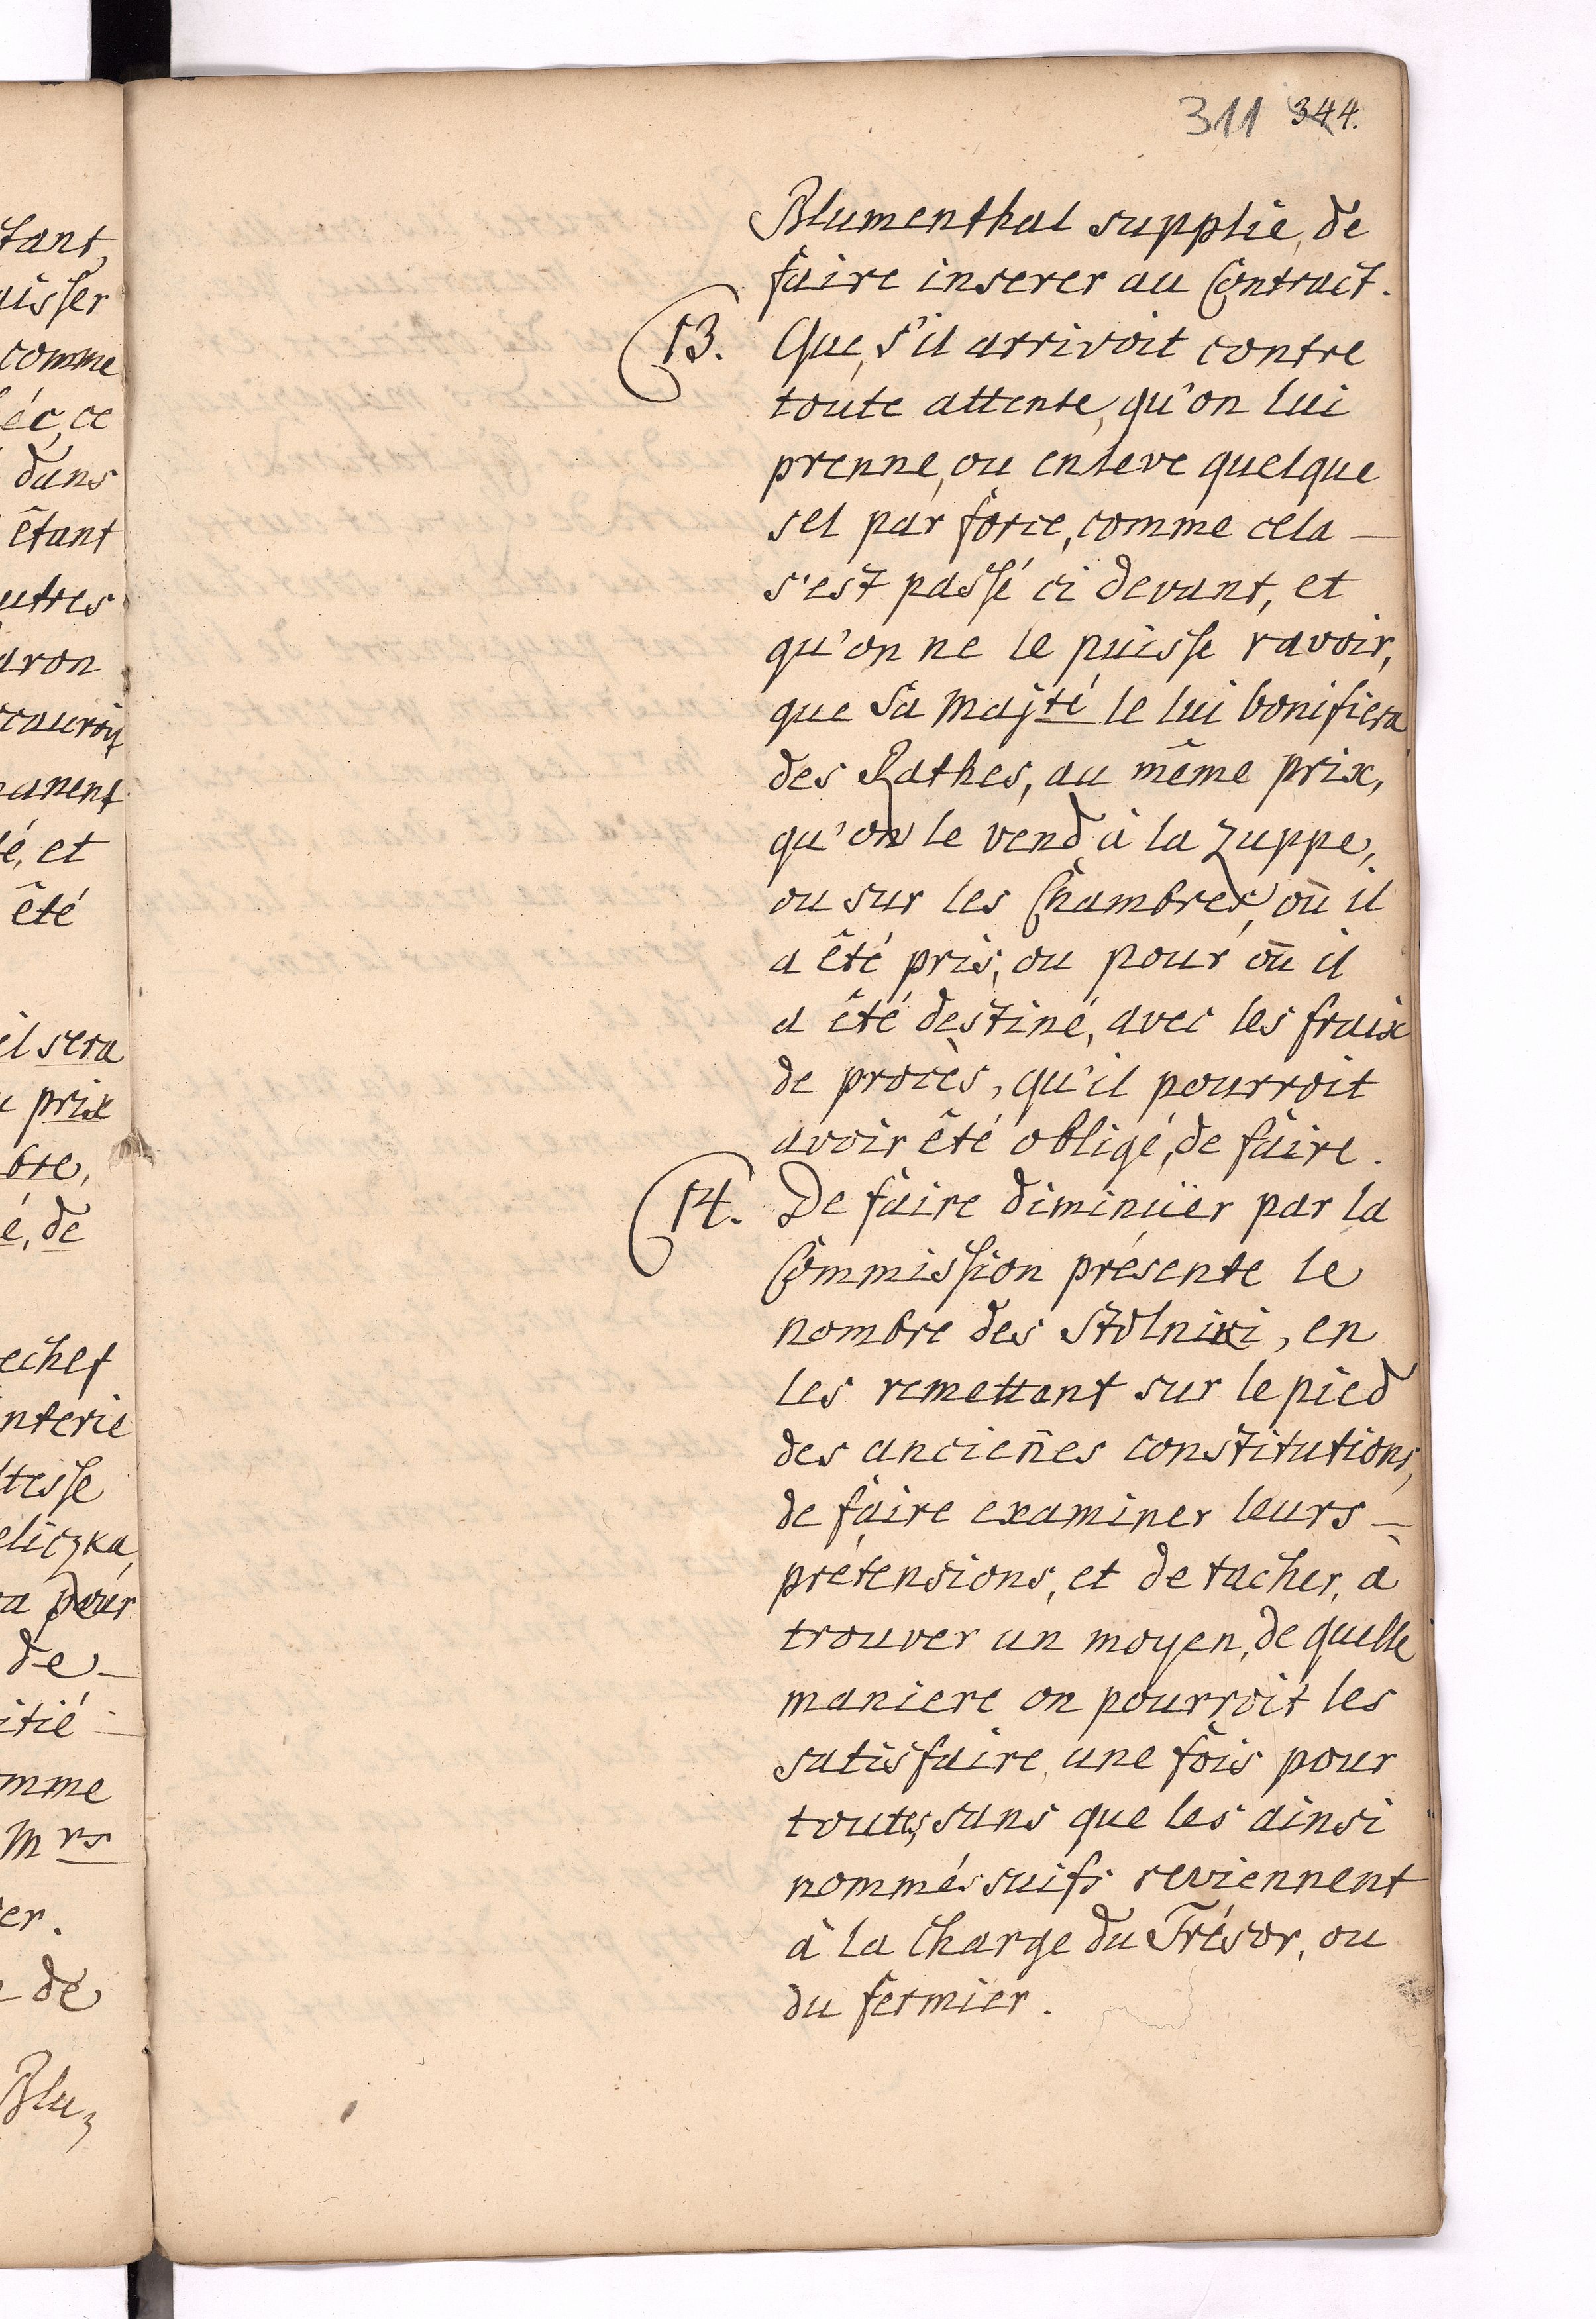 tant,
aisser
comme
ée, ce
dans
êtant
utres
aron
anent
é, et
êté
il sera
prix
bre,
é, de
echef
nterie
tesse
eliczka,
a pour
de
itié
omme
Mrs
er.
de
Blu,
311 344.
Blumenthal supplie, de
faire inserer au Contract.
13. Que, s'il arrivoit contre
toute attente, qu'on lui
prenne, ou enleve quelque
sel par force, comme cela
s'est passé ci devant, et
qu'on ne le puisse ravoir,
que Sa Majté le lui bonifiera
des Rathes, au même prix,
qu'on le vend à la Zuppe,
ou sur les Chambres, où il
a êté pris, ou pour où il
a êté destiné, avec les fraix
de procès, qu'il pourroit
avoir êté obligé, de faire.
14. De faire diminuër par la
Commission présente le
nombre des Stolniki, en
les remettant sur le pied
des ancien̄es constitutions,
de faire examiner leurs
prétensions, et de tacher, à
trouver un moyen, de quelle
maniere on pourroit les
satisfaire, une fois pour
toutes, sans que les ainsi
nommés suifs reviennent
à la Charge du Trésor, ou
du fermier.